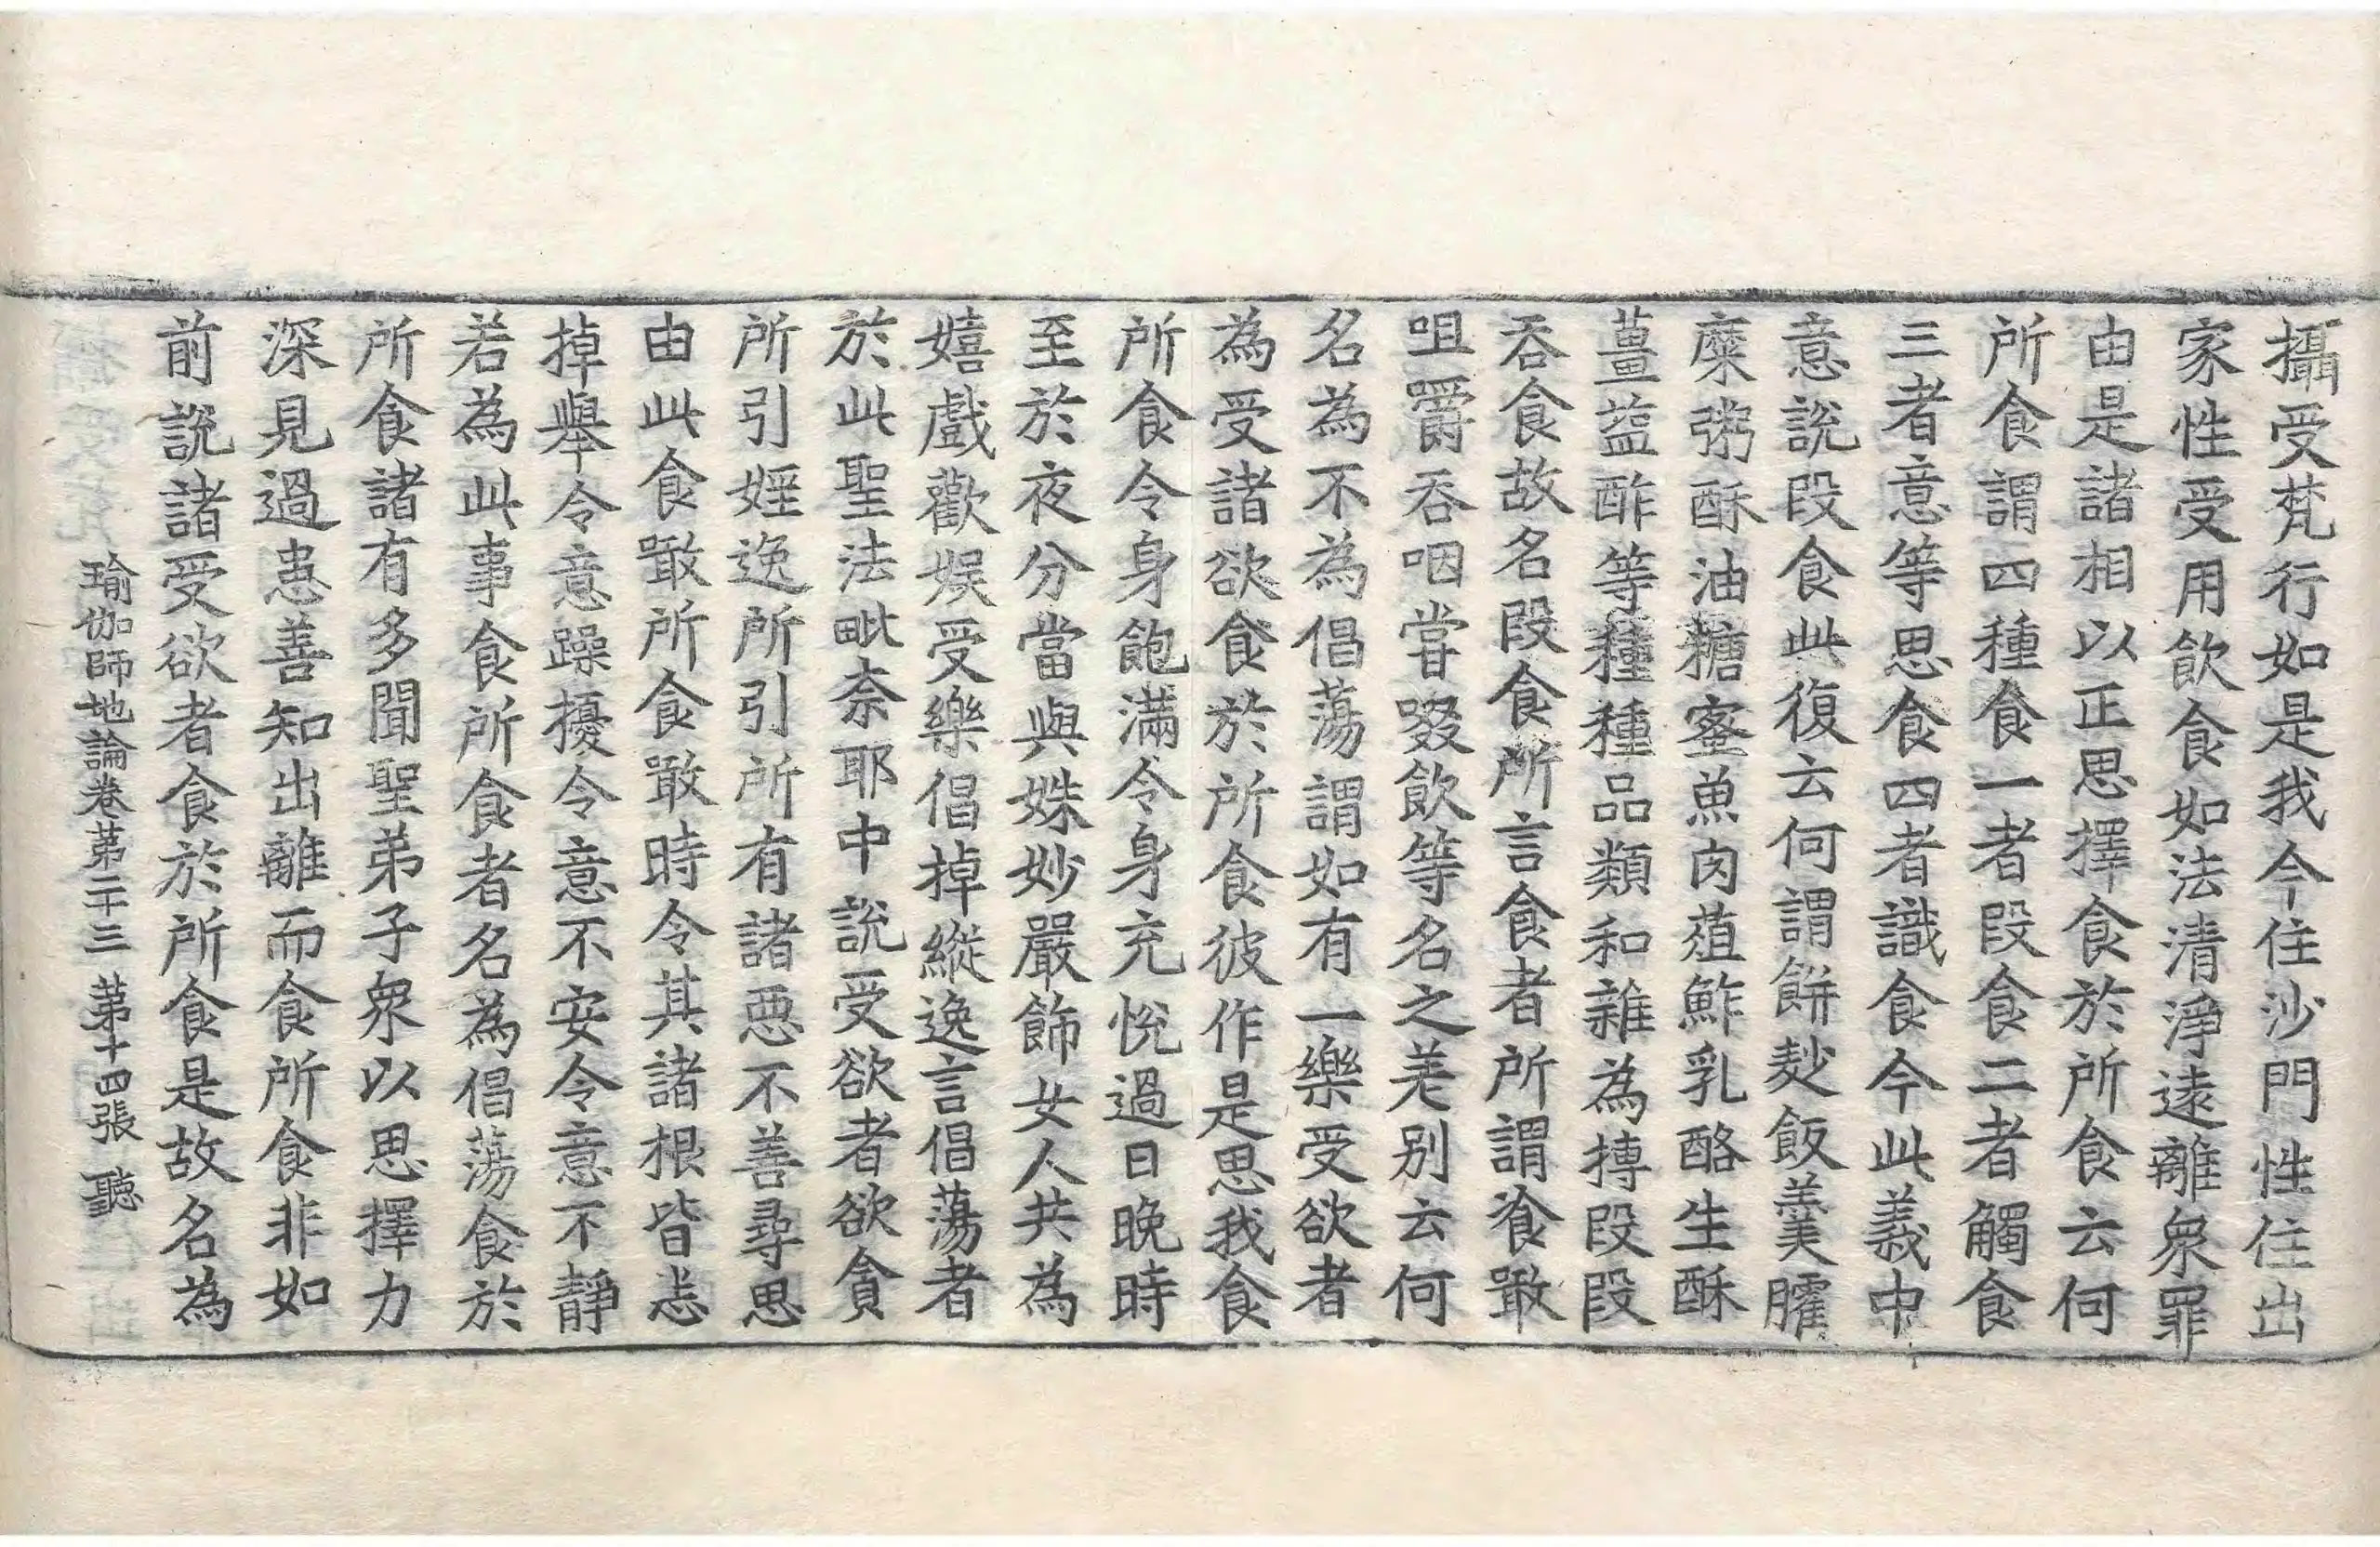 攝受梵行如是我今住沙門性住出
家性受用飲食如法清淨遠離衆罪
由是諸相以正思擇食於所食云何
所食謂四種食一者段食二者觸食
三者意等思食四者識食今此義中
意說段食此復云何謂餅麨飯羹臛
糜粥酥油糖蜜魚肉葅鮓乳酪生酥
薑鹽酢等種種品類和雜為摶段段
吞食故名段食所言食者所謂飡噉
咀嚼吞咽嘗啜飲等名之差別云何
名為不為倡蕩謂如有一樂受欲者
為受諸欲食於所食彼作是思我食
所食令身飽滿令身充悅過日晚時
至於夜分當與姝妙嚴飾女人共為
嬉戲歡娛受樂倡掉縱逸言倡蕩者
於此聖法毗奈耶中說受欲者欲貪
所引婬逸所引所有諸惡不善尋思
由此食噉所食噉時令其諸根皆悉
掉舉令意躁擾令意不安令意不靜
若為此事食所食者名為倡蕩食於
所食諸有多聞聖弟子衆以思擇力
深見過患善知出離而食所食非如
前說諸受欲者食於所食是故名為
瑜伽師地論卷第二十三 第十四張 聽